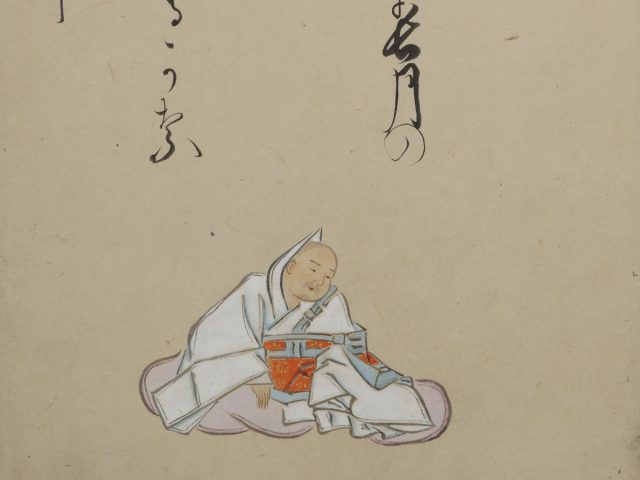 長月の
るかな